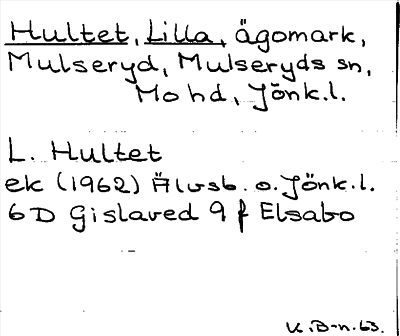 Hultet, Lilla, ägomark,
Mulseryd, Mulseryds sn,
Mo hd, Jönk.l.
L. Hultet
ek (1962) Älvsb. o. Jönk.l.
6D Gislaved 9 f Elsabo
K.B-n.63.